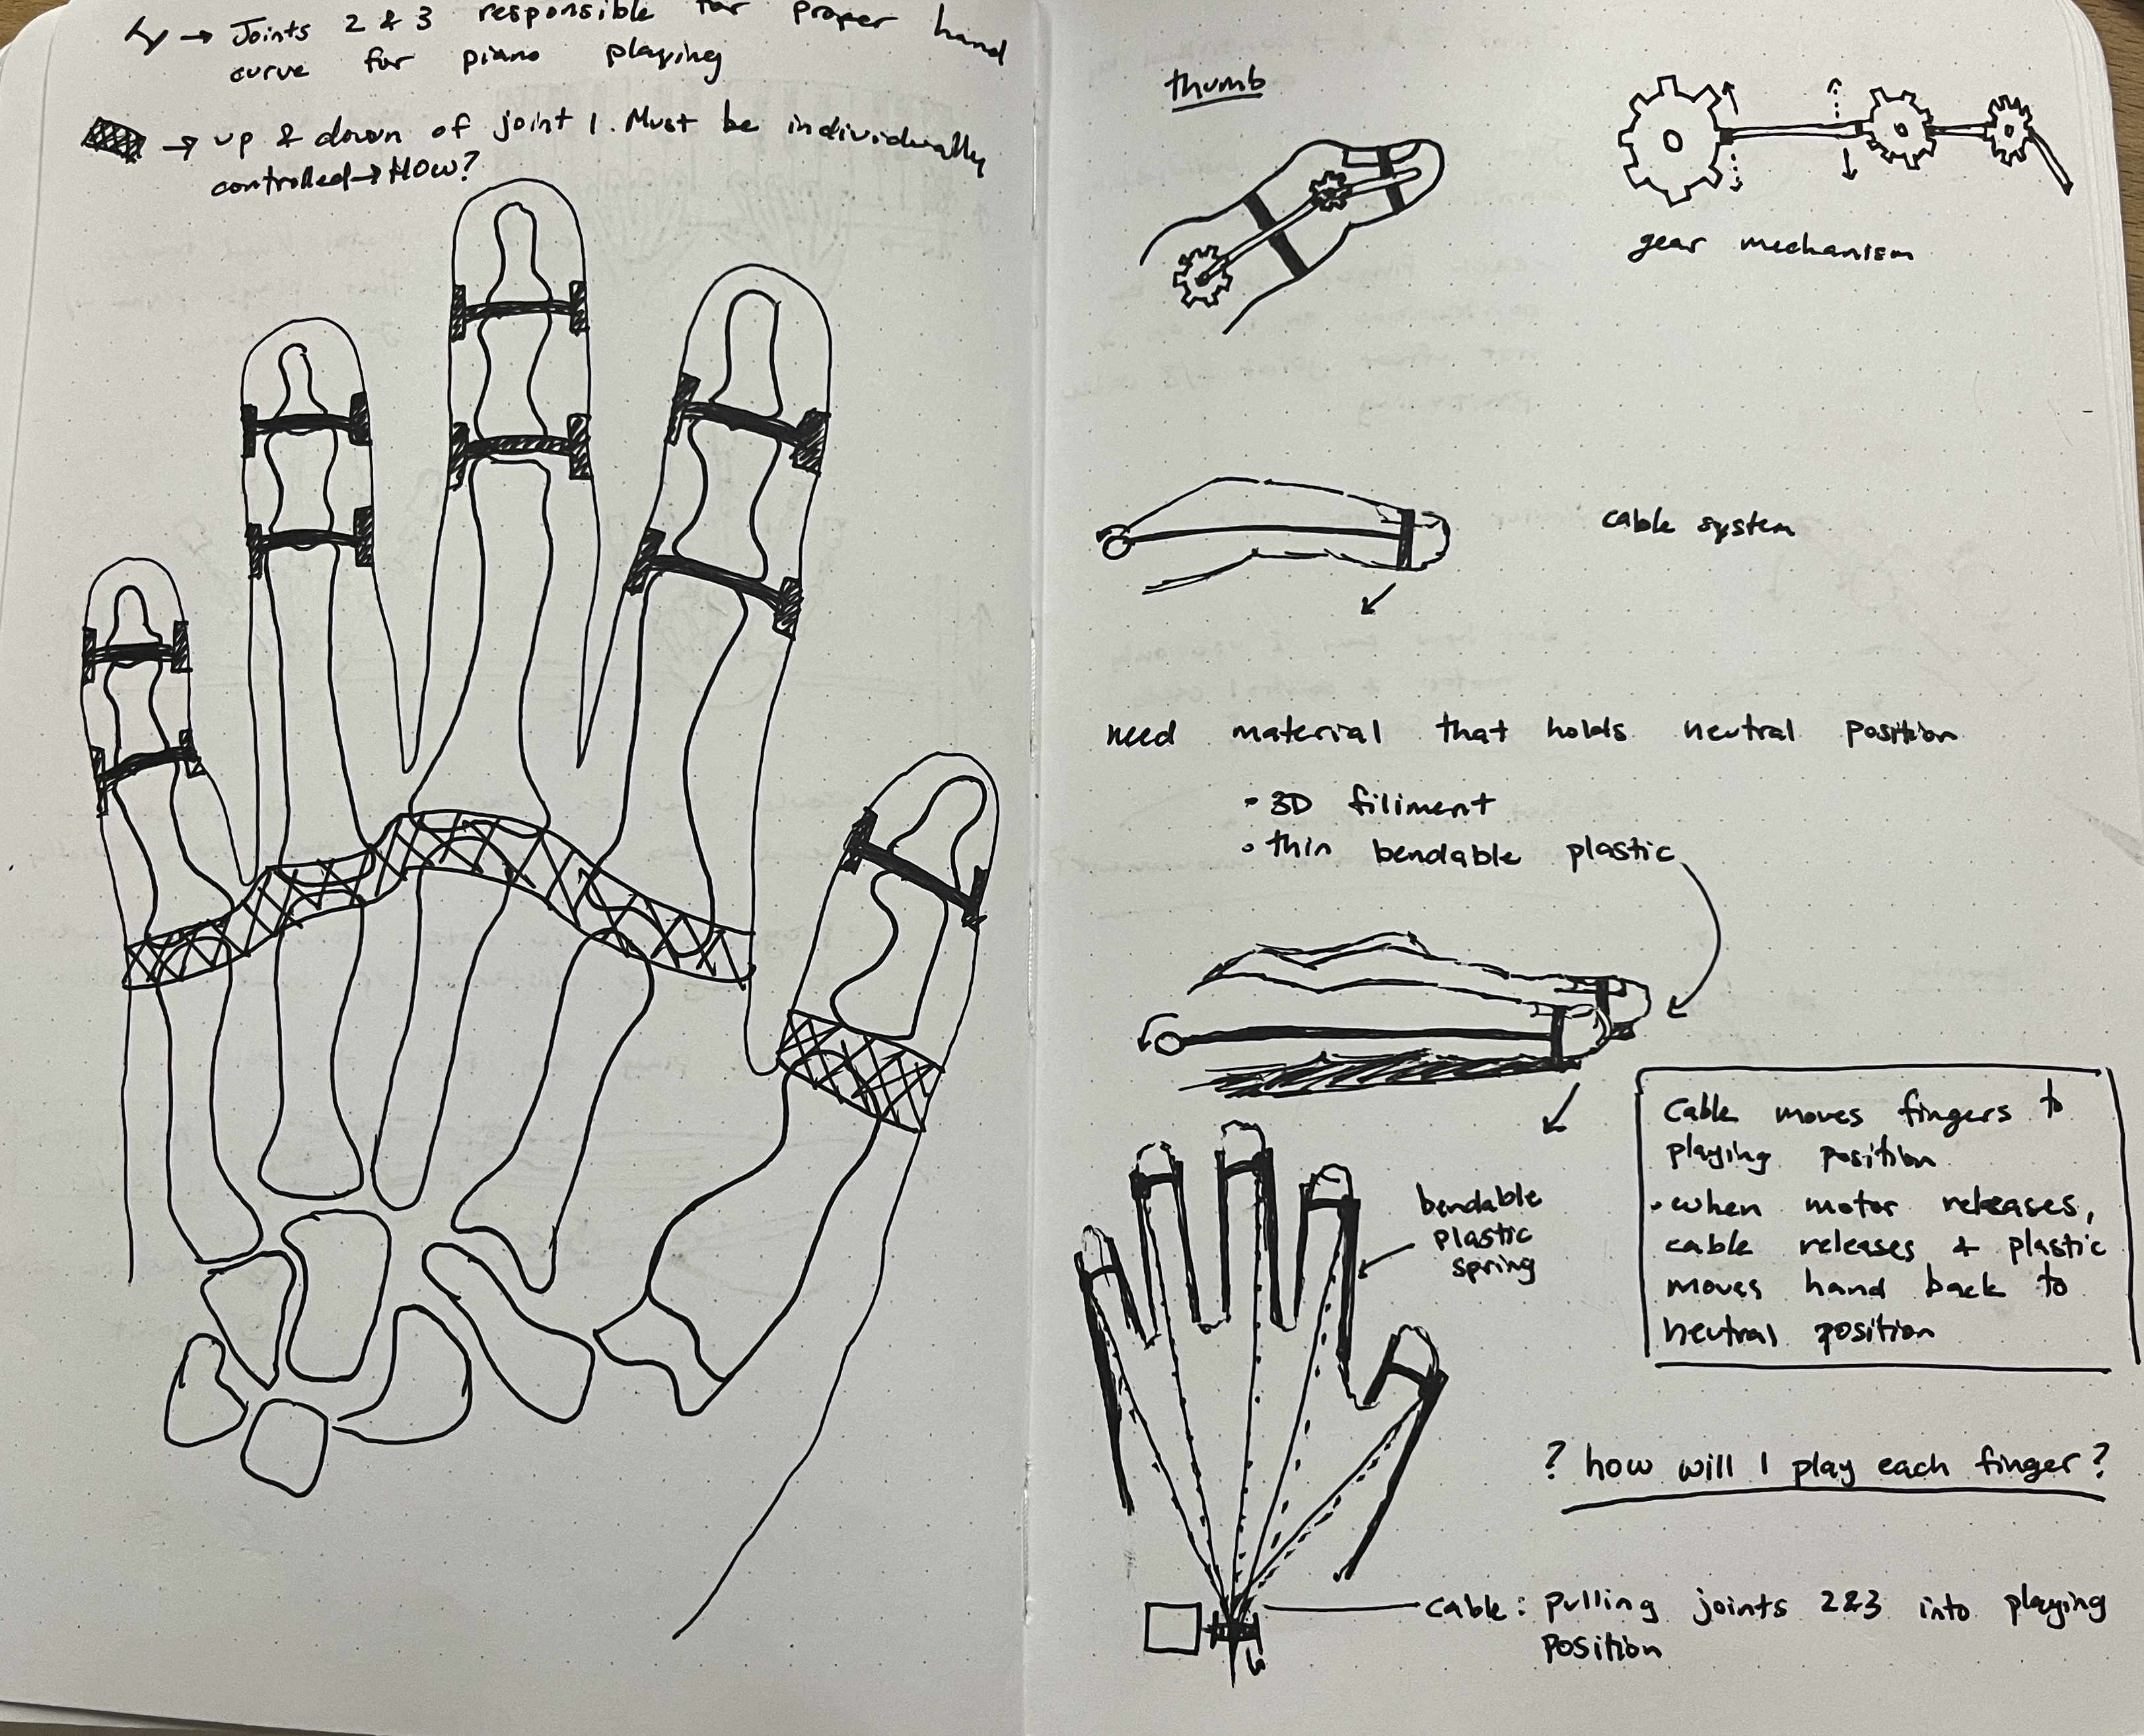 Joints 2 & 3 responsible for proper hand
curve for piano playing
up & down of joint 1. Must be individually
controlled → HOW?
thumb
gear mechanism
cable system
need material that holds neutral position
• 3D filiment
• thin bendable plastic
Cable moves fingers to
playing position
• when motor releases,
cable releases & plastic
moves hand back to
neutral position
bendable
plastic
spring
? how will I play each finger?
cable: pulling joints 2&3 into playing
position